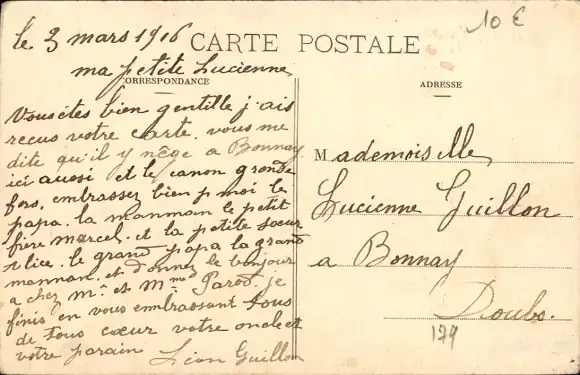 10 €
le 3 mars 1916
CARTE POSTALE
ma petite Lucienne
CORRESPONDANCE
ADRESSE
Vous êtes bien gentille j'ais
recus votre carte. vous me
dite qu'il y nêge a Bonnay
ici aussi et le canon gronde
fors, embrasser bien p moi le
papa. la manman le petit
frère Marcel. et la petite sœur
Alice. le grand papa la grand
manman. et donnez le bonjour
a chez Mr. et Mme Parod. je
finis en vous embrassant tous
de tous cœur votre oncle et
votre parain Léon Guillon
Mademoiselle
Lucienne Guillon
a Bonnay
Doubs.
179